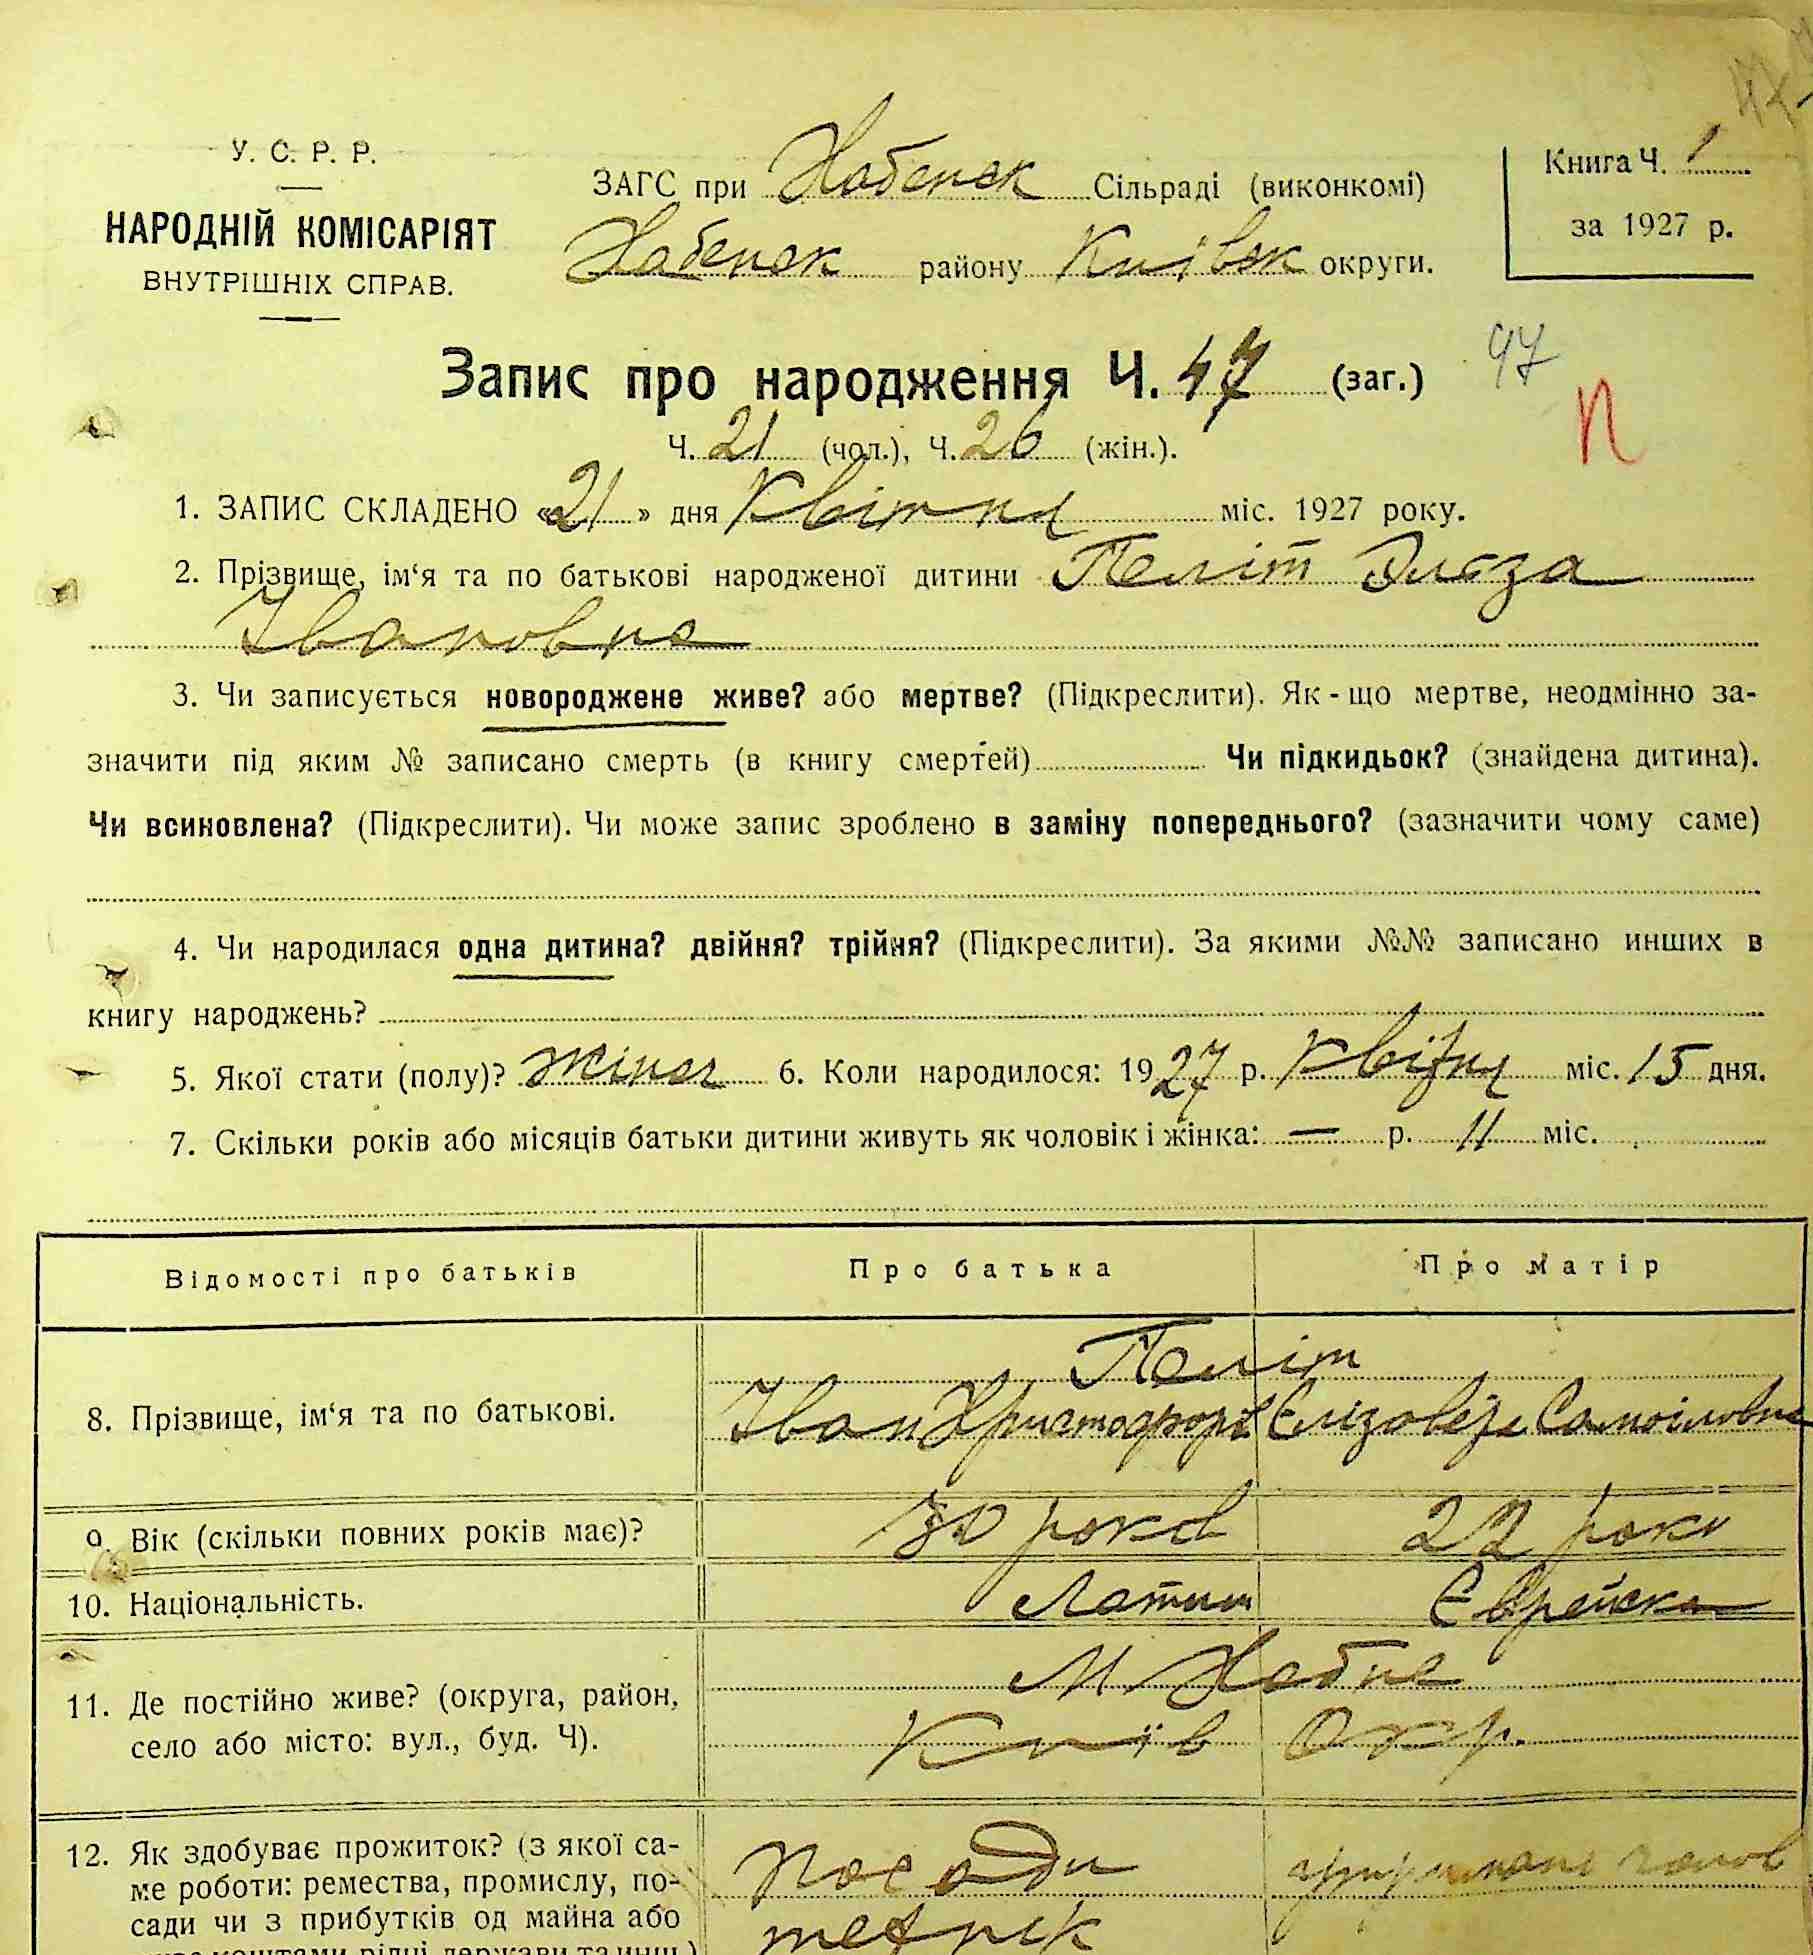 У. С. Р. Р.
НАРОДНІЙ КОМІСАРІЯТ
ВНУТРІШНІХ СПРАВ.
ЗАГС при Хабенск Сільраді (виконкомі)
Хабенск району Київск округи.
Книга Ч. 1
за 1927 р.
Запис про народження Ч. 47 (заг.) 47
П
Ч. 21 (чол.), Ч. 26 (жін.).
1. ЗАПИС СКЛАДЕНО «21» дня Квітня міс. 1927 року.
2. Прізвище, ім‘я та по батькові народженої дитини Пеліт Эльза
Івановна
3. Чи записується новороджене живе? або мертве? (Підкреслити). Як-що мертве, неодмінно за-
значити під яким № записано смерть (в книгу смертей) Чи підкидьок? (знайдена дитина).
Чи всиновлена? (Підкреслити). Чи може запис зроблено в заміну попереднього? (зазначити чому саме)
4. Чи народилася одна дитина? двійня? трійня? (Підкреслити). За якими №№ записано инших в
книгу народжень?
5. Якої стати (полу)? жіноч 6. Коли народилося: 1927 р. Квітня міс. 15 дня.
7. Скільки років або місяців батьки дитини живуть як чоловік і жінка: — р. 11 міс.
Відомості про батьків Про батька Про матір
Пеліт
8. Прізвище, ім‘я та по батькові. Іван Христофоров Єлізовета Самоіловна
9. Вік (скільки повних років має)? 30 років 22 роки
10. Національність. Латиш Єврейска
11. Де постійно живе? (округа, район, М Хабне
село або місто: вул., буд. Ч). Київ Окр.
12. Як здобуває прожиток? (з якої са- Посади
ме роботи: ремества, промислу, по-
сади чи з прибутків од майна або